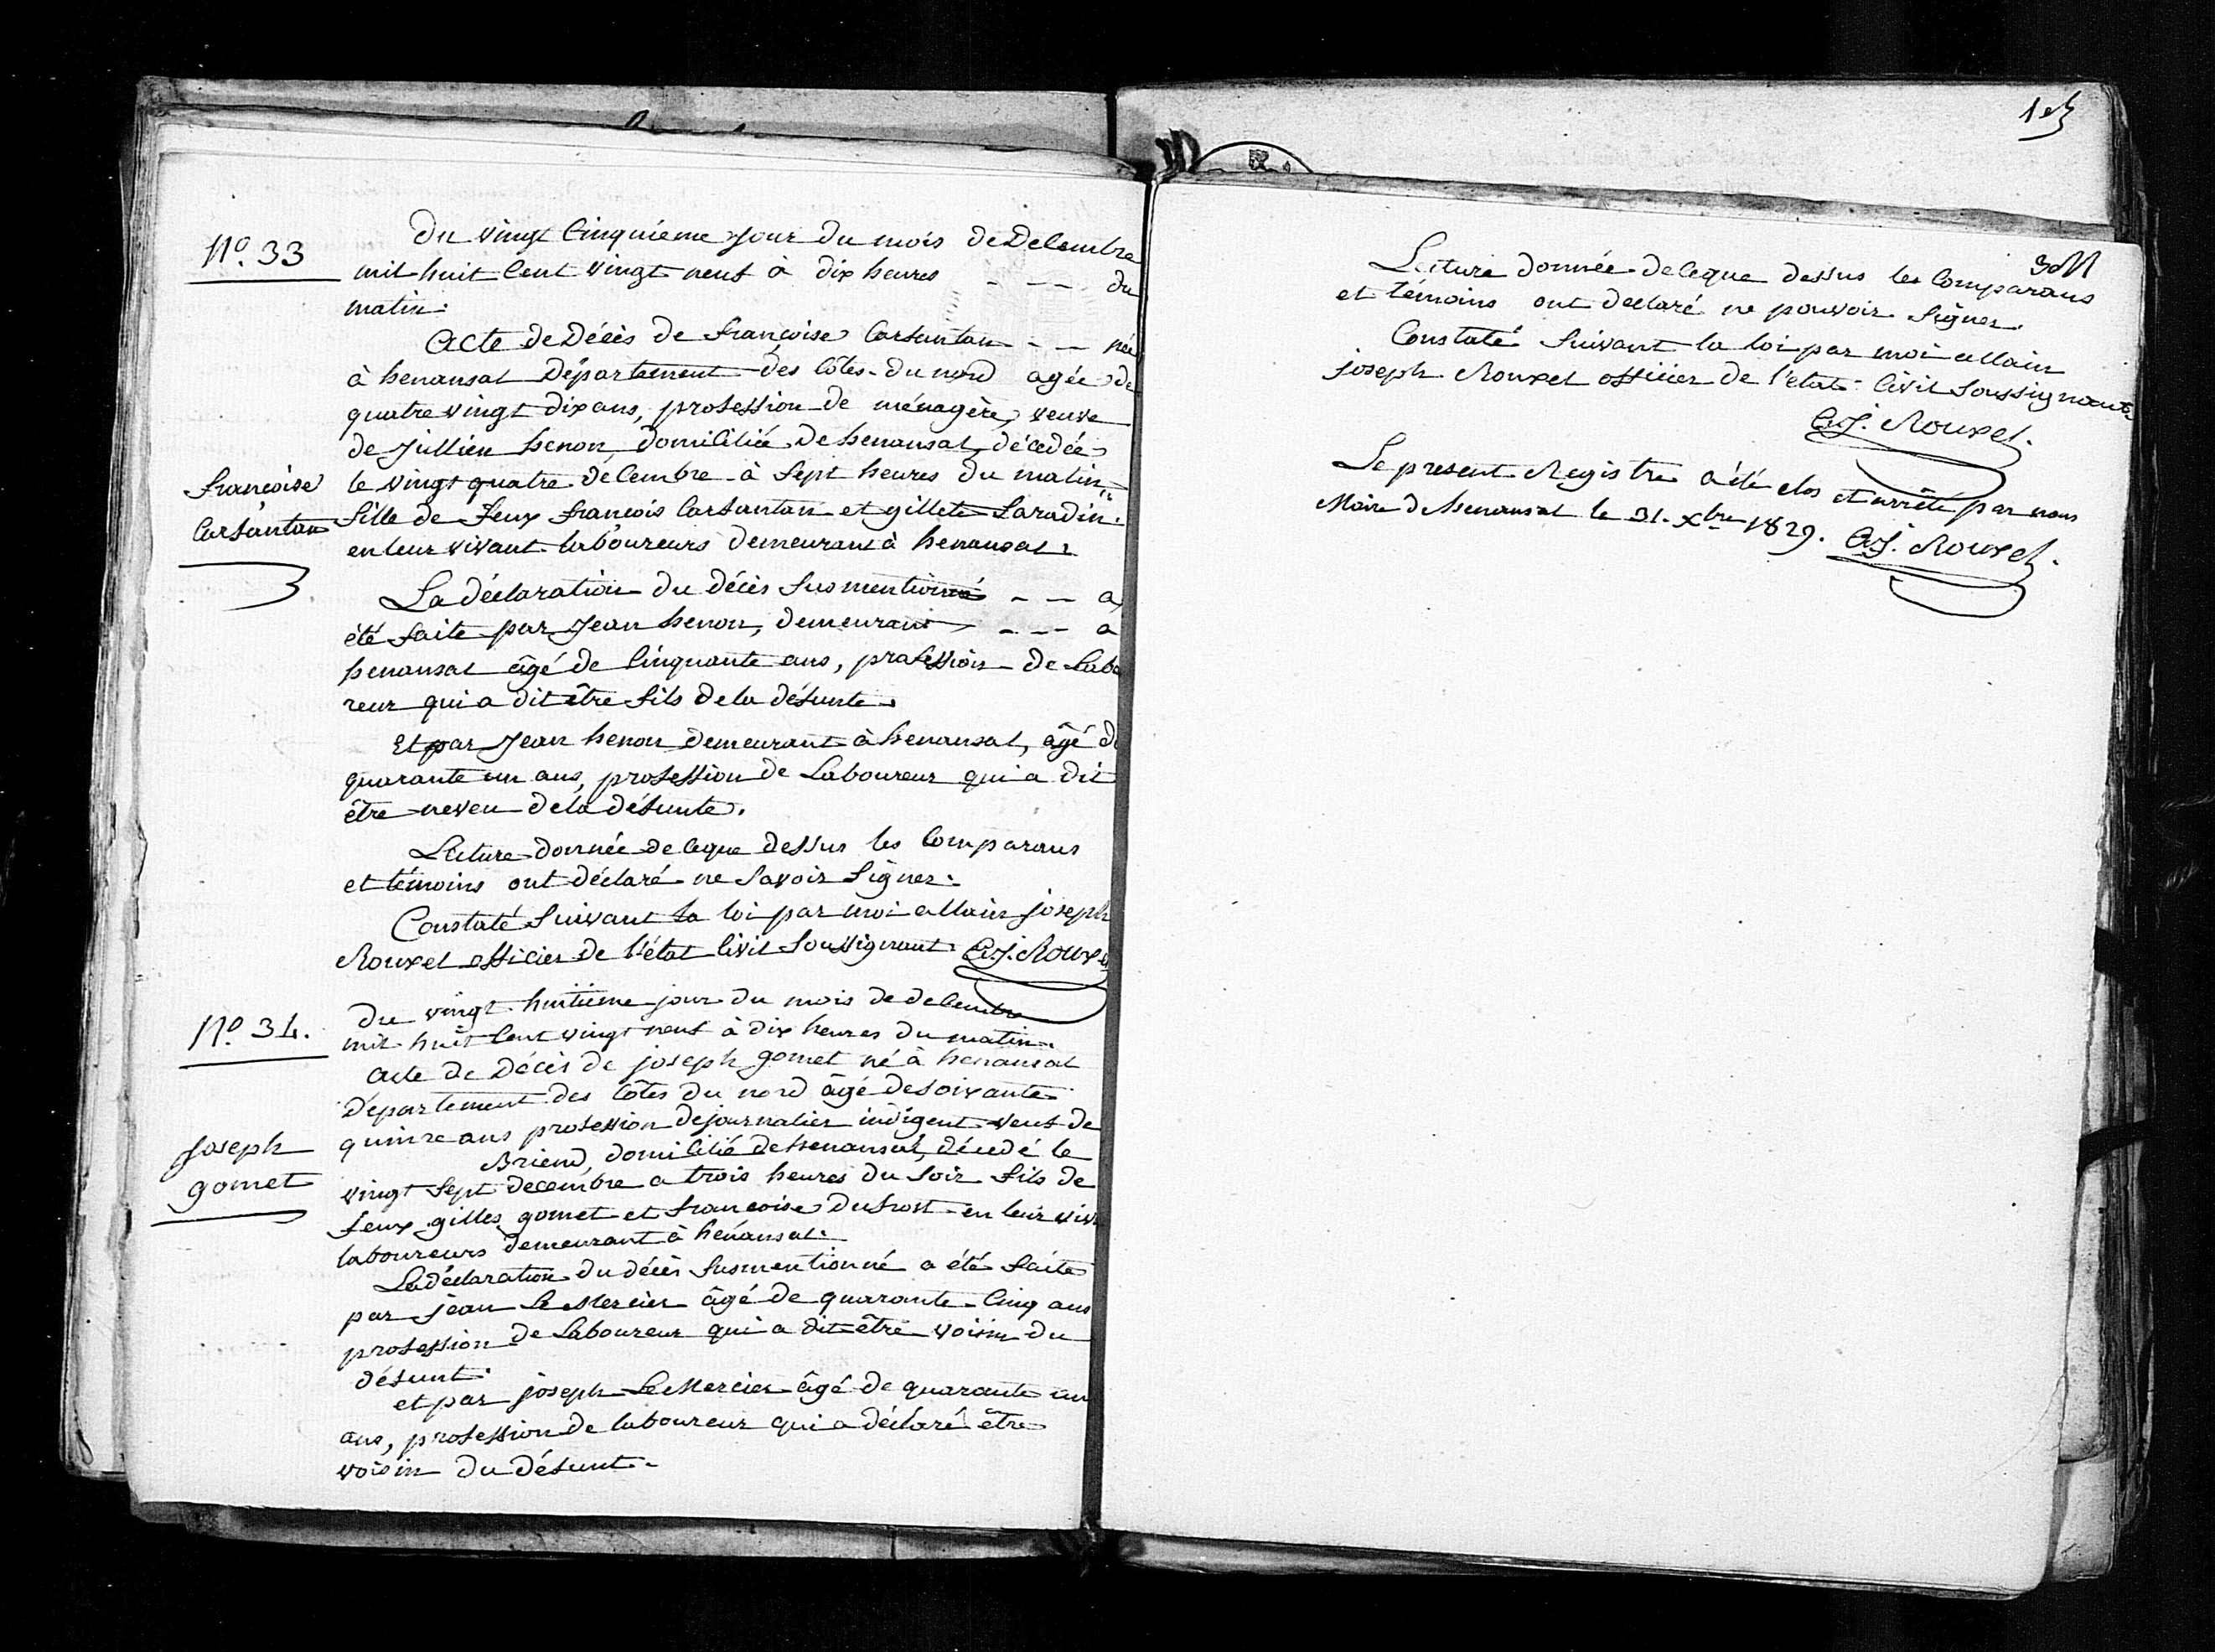 N.º 33
Du vingt cinquième jour du mois de Decembre
mil huit cent vingt neuf à dix heures - - - du
matin.
Acte de Décès de françoise Carsantan - - née
à henansal Département des Côtes-du nord agée de
quatre vingt dix ans, profession de ménagère, veuve
de Jullien henon, domiciliée de henansal, décedée
françoise
Carsantan
le vingt quatre decembre à sept heures du matin,
fille de feux francois Carsantan et gillete Laradin
en leur vivant laboureurs demeurant à henansal.
La déclaration du décès susmentionné - - a
été faite par Jean henon, demeurant - - - a
henansal âgé de cinquante ans, profession de Labo
reur qui a dit être fils de la défunte.
Et par Jean henon demeurant à henansal, âgé de
quarante un ans, profession de Laboureur qui a dit
être neveu de la défunte.
Lecture donnée de ceque dessus les Comparans
et témoins ont déclaré ne savoir signer.
Constaté suivant la loi par moi allain joseph
Rouxel officier de l'état Civil soussignant. A.J. Rouxel
N.º 34.
Du vingt huitième jour du mois de decembre
mil huit cent vingt neuf à dix heures du matin.
acte de décès de joseph gomet né à henansal
Département des Côtes du nord âgé de soixante
quinze ans profession de journalier indigent veuf de
Joseph
gomet
Briend, domicilié de henansal, décedé le
vingt sept decembre a trois heures du soir fils de
feux gilles gomet et francoise Dufrost en leur viv
laboureurs demeurant à hénansal.
La déclaration du décès susmentionné a été faite
par jean Le Mercier âgé de quarante-cinq ans
profession de Laboureur qui a dit être voisin du
défunt.
et par joseph Le Mercier âgé de quarante un
ans, profession de laboureur qui a déclaré être
voisin du défunt.
Lecture donnée de ceque dessus les Comparans
et témoins ont declaré ne pouvoir signer.
Constaté suivant la loi par moi allain
joseph Rouxel officier de l'etat Civil soussignant
A.J. Rouxel.
Le present Registre a été clos et arrêté par nous
Maire de henansal le 31. Xbre 1829. A.J. Rouxel.